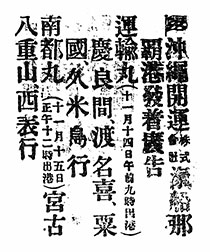 沖縄開運株式会社 那
覇港発着広告
運輸丸(十一月十四日午前九時出港)
慶良間渡名喜、粟
國久米島行
南都丸(十一月十五日正午十二時出港)宮古
八重山西表行